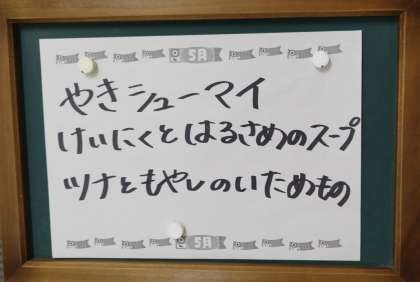 5月
やきシューマイ
けいにくとはるさめのスープ
ツナともやしのいためもの
5月